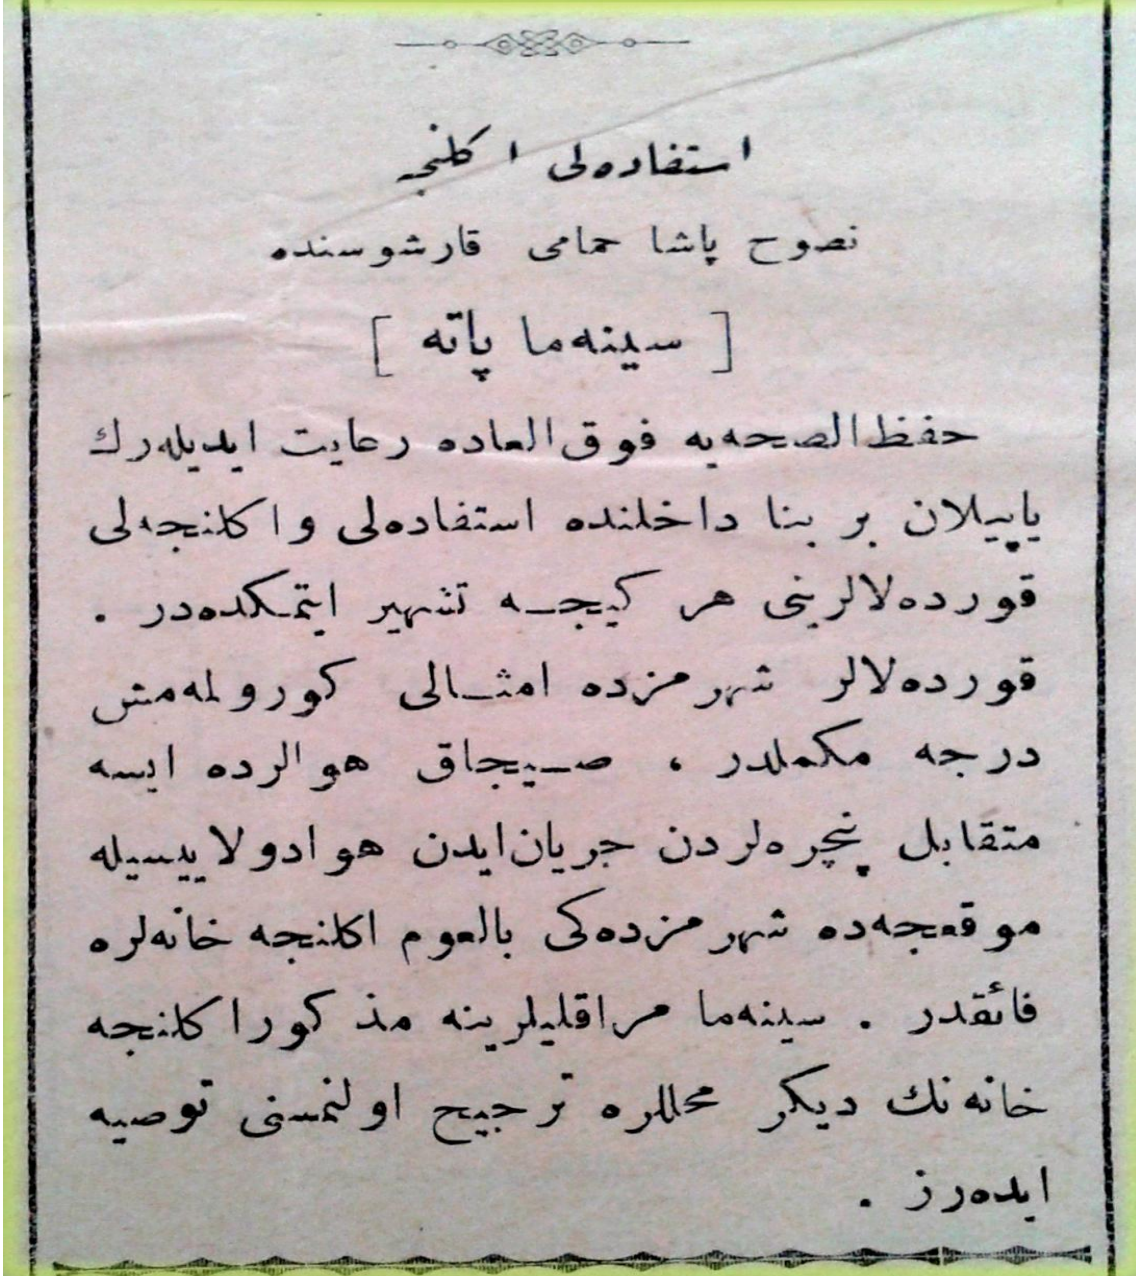 استفاده‌لی اكلنجه
نصوح پاشا حمامی قارشوسنده
[ سینه‌ما پاته ]
حفظ‌الصحه‌یه فوق‌العاده رعایت ایدیله‌رك
یاپیلان بر بنا داخلنده استفاده‌لی واكلنجه‌لی
قورده‌لالرینی هر كیجــه تشهیر ایتمكده‌در .
قورده‌لالر شهرمزده امثــالی كورولمه‌مش
درجه مكملدر ، صــیجاق هوالرده ایسه
متقابل پنچره‌لردن جریان‌ایدن هوادولاییسیله
موقعجه‌ده شهرمزده‌كی بالعوم اكلنجه خانه‌لره
فائقدر . سینه‌ما مراقلیلرینه مذكوراكلنجه
خانه‌نك دیكر محللره ترجیح اولنمسنی توصیه
ایده‌رز .